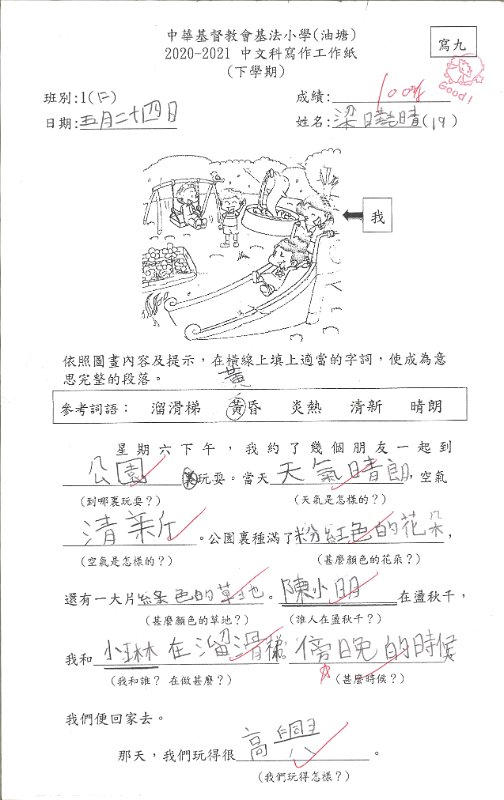 中華基督教會基法小學(油塘)
2020-2021 中文科寫作工作紙
(下學期)
寫九
Good!
班別:1(仁)
成績: 100分
日期:五月二十四日
姓名:梁晧晴(19)
我
依照圖畫內容及提示,在橫線上填上適當的字詞,使成為意
思完整的段落。
黃
參考詞語: 溜滑梯 黃昏 炎熱 清新 晴朗
星期六下午,我約了幾個朋友一起到
公園玩耍。當天天氣晴朗,空氣
(到哪裏玩耍?) (天氣是怎樣的?)
清新。公園裏種滿了粉紅色的花朵,
(空氣是怎樣的?) (甚麼顏色的花朵?)
還有一大片綠色的草地。陳小明在盪秋千,
(甚麼顏色的草地?) (誰人在盪秋千?)
我和小琳在溜滑梯。傍晚的時候
(我和誰? 在做甚麼?) (甚麼時候?)
我們便回家去。
那天,我們玩得很高興。
(我們玩得怎樣?)